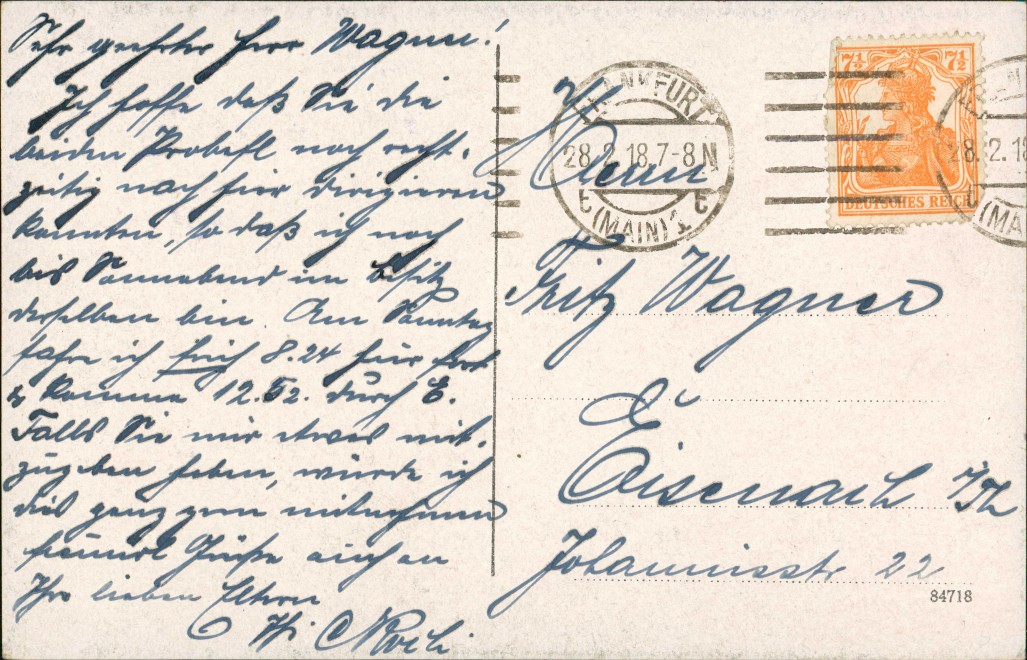 Sehr geehrter Herr Wagner!
Ich hoffe daß Sie die
beiden Probefl noch recht-
zeitig nach hier dirigieren
konnten, so daß ich noch
bis Sonnabend im Besitz
derselben bin. Am Sonntag
fahre ich früh 8.24 hier fort
& komme 12.52. durch E.
Falls Sie mir etwas mit-
zugeben haben, würde ich
dies ganz gern mitnehmen
freundl Grüße auch an
Ihre lieben Eltern
FRANKFURT
28.2.18.7-8N
(MAIN) 1
7½ 7½
DEUTSCHES REICH
28.2.18
(MA
Herrn
Fritz Wagner
Eisenach i/Th
Johannisstr 22
84718